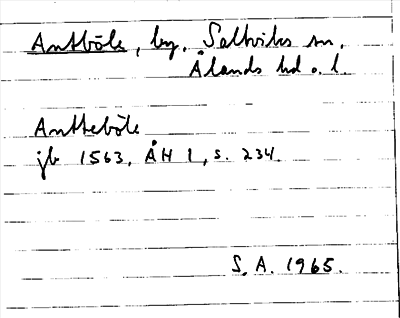 Antböle, by, Saltviks sn,
Ålands hd o. l.
Antteböle
jb 1563, ÅH 1, s. 234.
S. A. 1965.